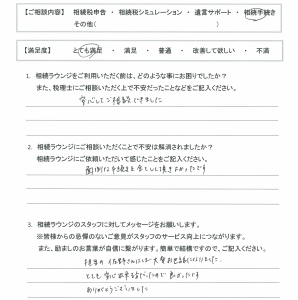 【ご相談内容】 相続税申告 ・ 相続税シミュレーション ・ 遺言サポート ・ 相続手続き
その他( )
【満足度】 とても満足 ・ 満足 ・ 普通 ・ 改善して欲しい ・ 不満
1. 相続ラウンジをご利用いただく前は、どのような事にお困りでしたか?
また、税理士にご相談いただく上で不安だったことなどをご記入ください。
安心してご相談できました
2. 相続ラウンジにご相談いただくことで不安は解消されましたか?
相続ラウンジにご依頼いただいて感じたことをご記入ください。
面倒な手続きを全てして頂き助かったです
3. 相続ラウンジのスタッフに対してメッセージをお願いします。
※皆様からの忌憚のないご意見がスタッフのサービス向上につながります。
また、励ましのお言葉が自信に繋がります。簡単で結構ですので、ご記入ください。
担当の佐野さんには大変お世話になりました
とても 良かったです
ありがとうございました